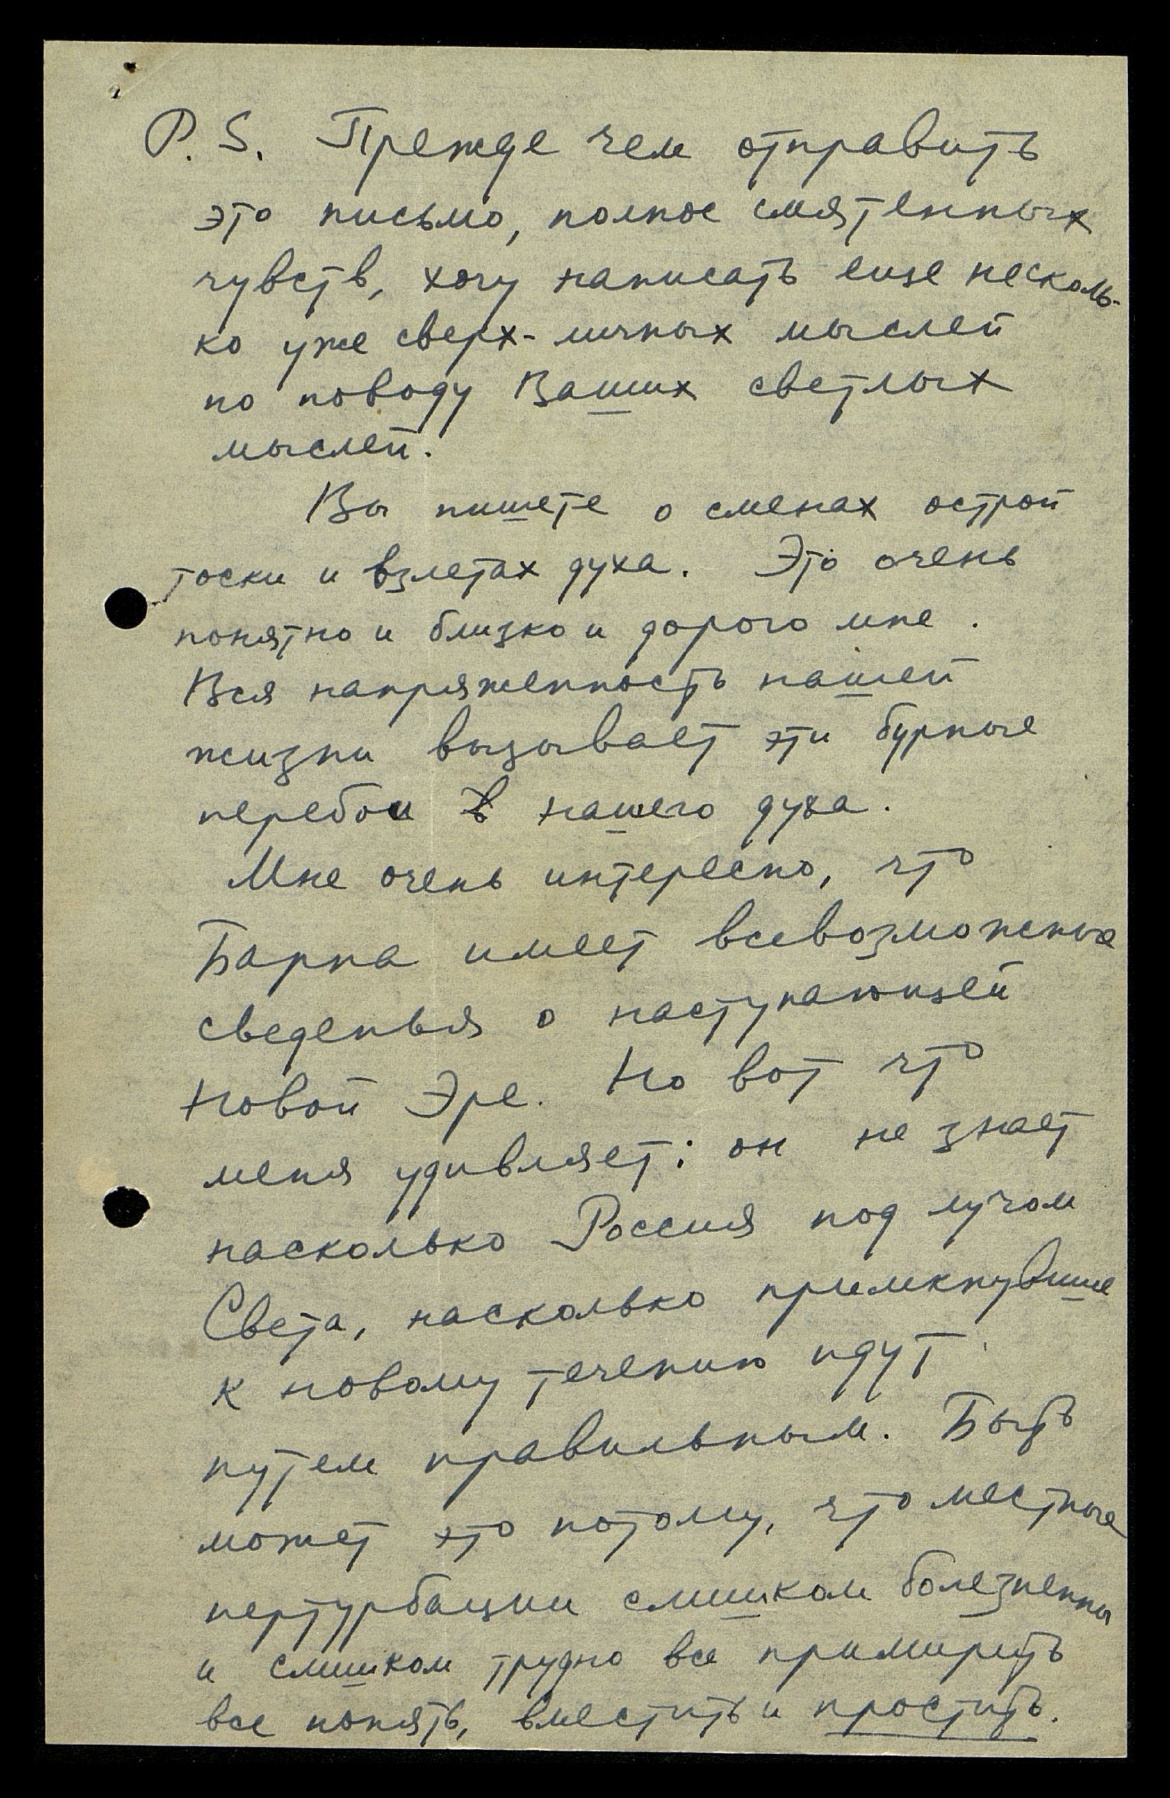 P. S. Прежде чем отправить
это письмо, полное смятенных
чувств, хочу написать еще несколь-
ко уже сверх-личных мыслей
по поводу Ваших светлых
мыслей.
Вы пишете о сменах острой
тоски и взлетах духа. Это очень
понятно и близко и дорого мне.
Вся напряженность нашей
жизни вызывает эти бурные
перебои в нашего духа.
Мне очень интересно, что
Барпа имеет всевозможные
сведенья о наступающей
Новой Эре. Но вот что
меня удивляет: он не знает
насколько Россия под лучом
Света, насколько примкнувшие
к новому течению идут
путем правильным. Быть
может это потому, что местные
пертурбации слишком болезненны
и слишком трудно все примирить
все понять, вместить и простить.